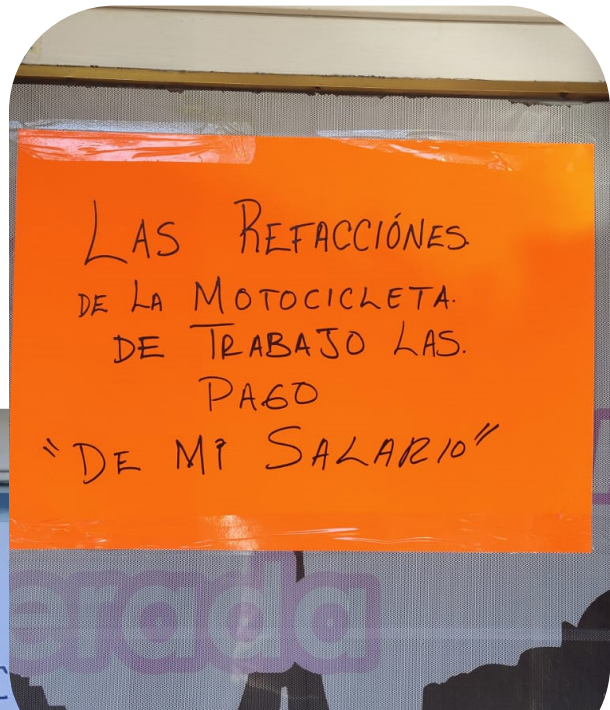 LAS REFACCIÓNES.
DE LA MOTOCICLETA.
DE TRABAJO LAS.
PAGO
"DE MI SALARIO"
erada